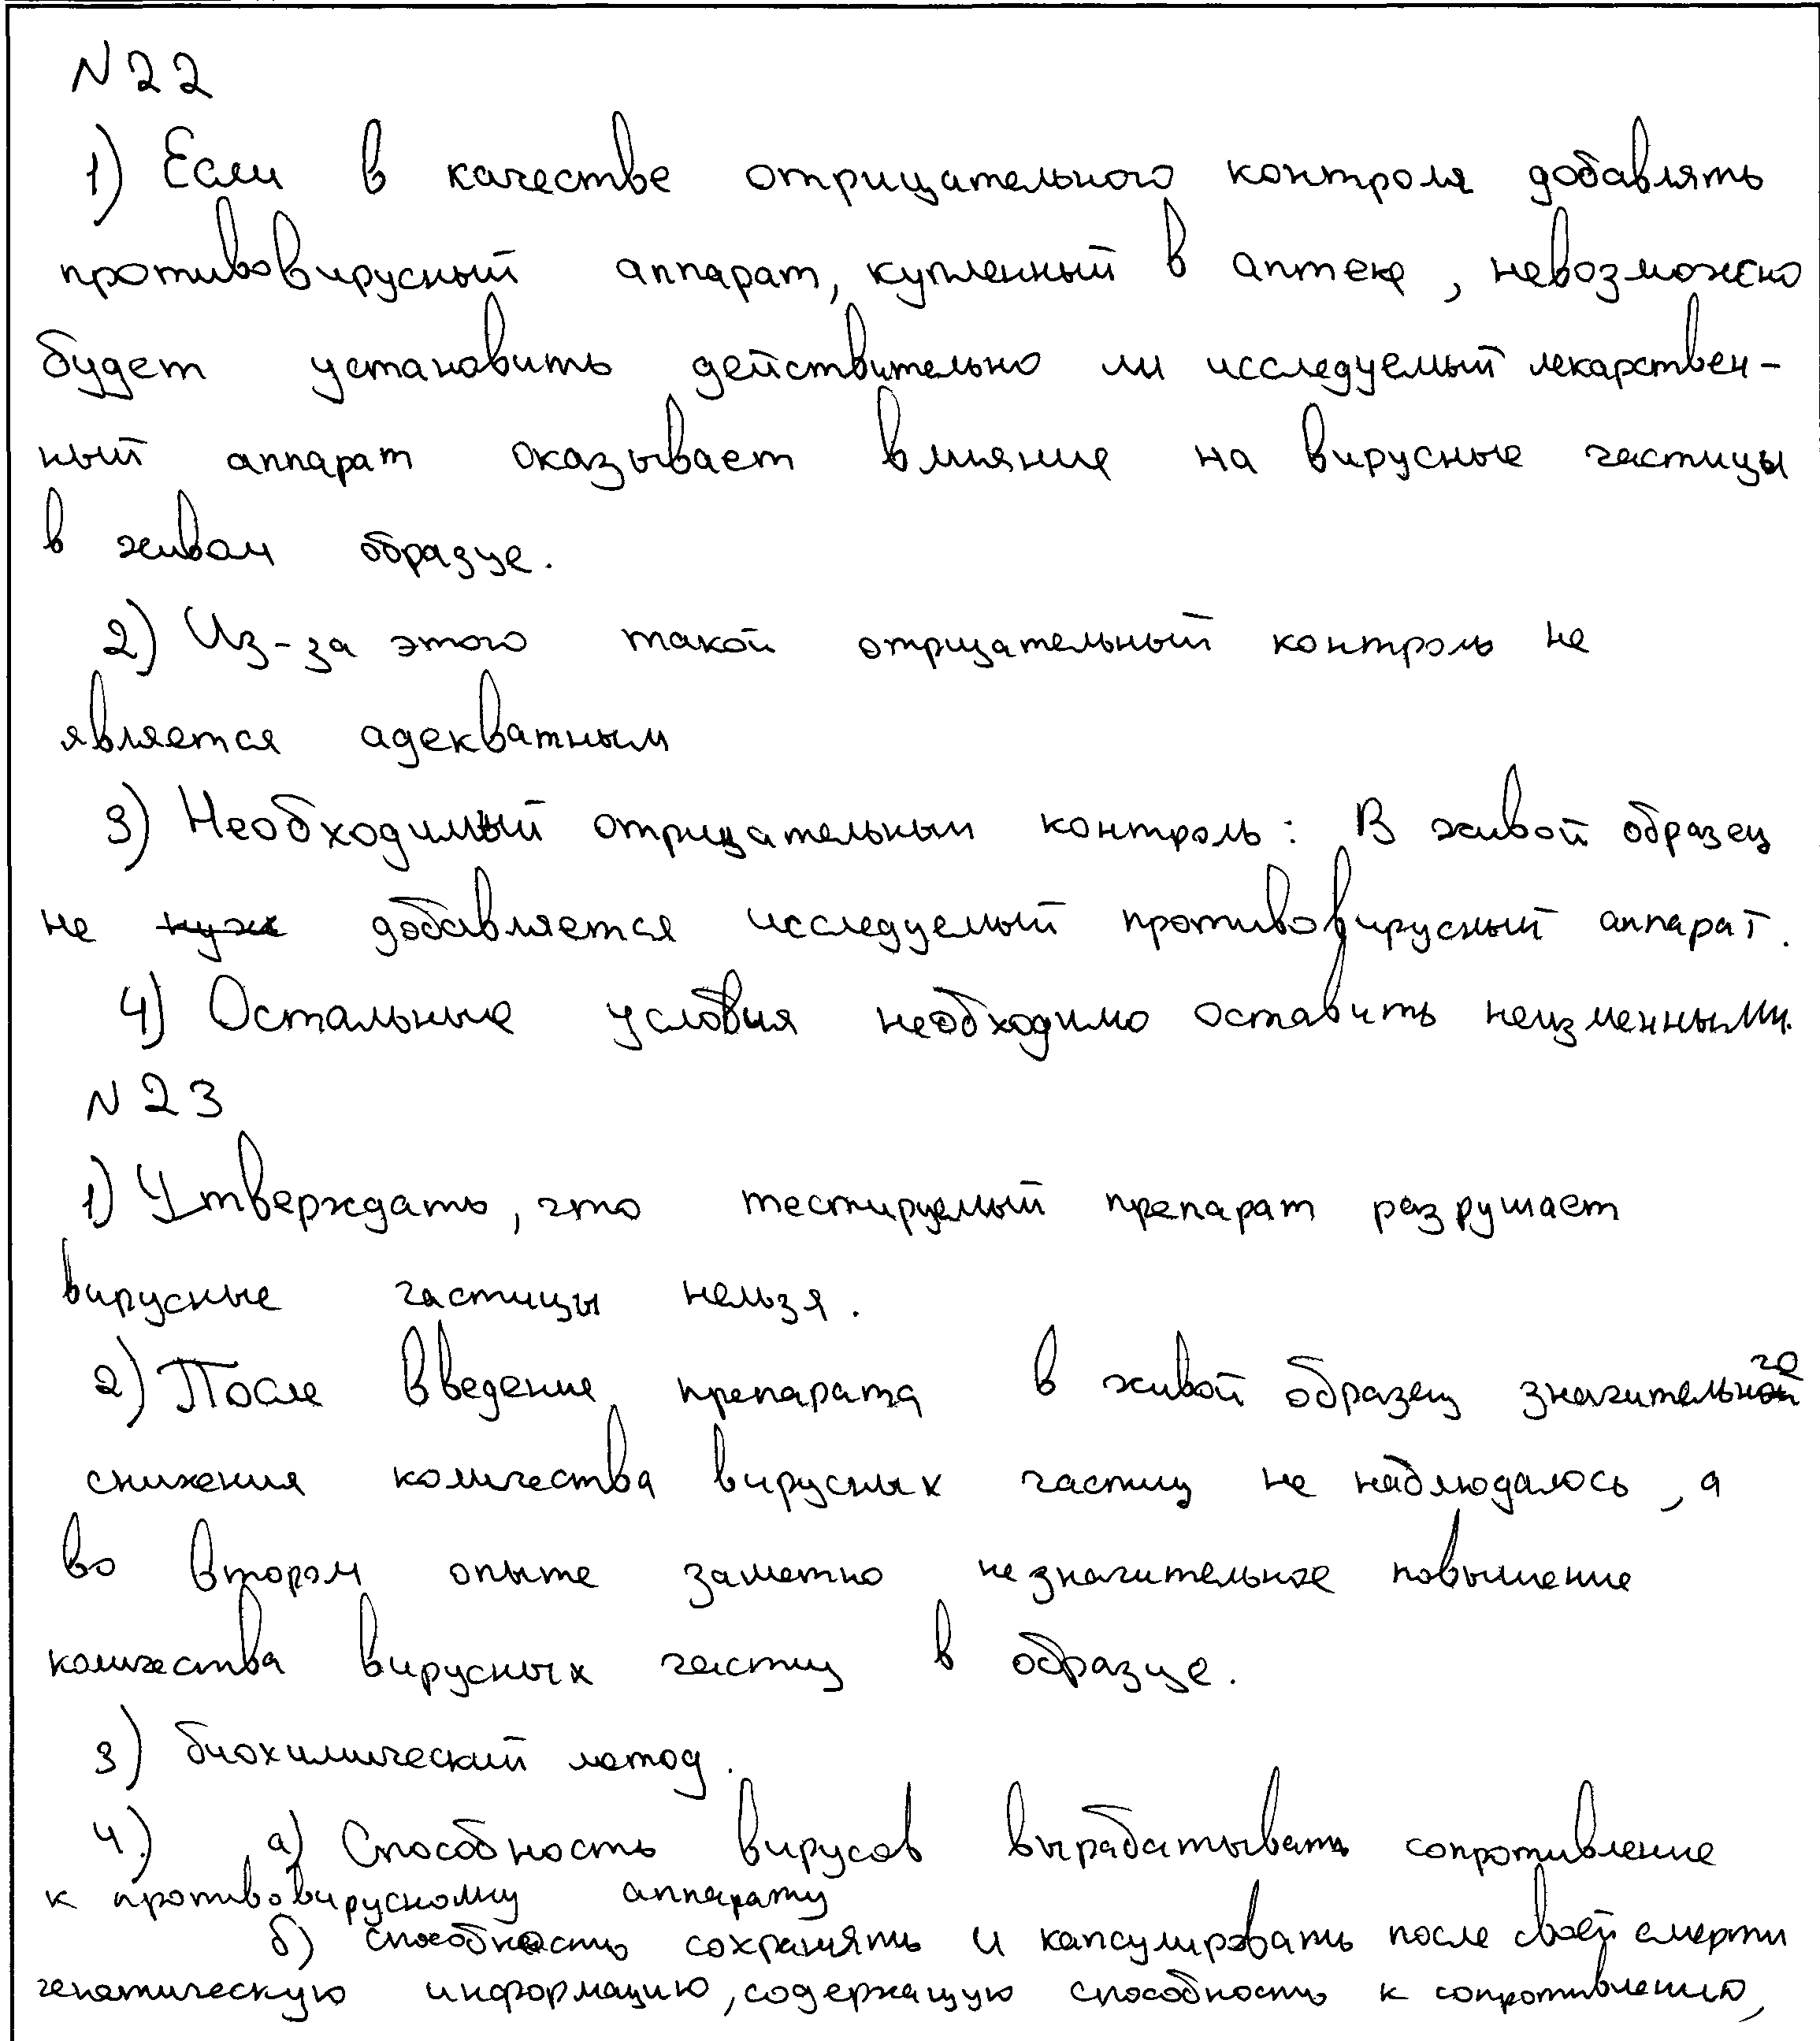 N22
1) Если в качестве отрицательного контроля добавлять
противовирусный аппарат, купленный в аптеке, невозможно
будет установить действительно ли исследуемый лекарствен-
ный аппарат оказывает влияние на вирусные частицы
в живом образце.
2) Из-за этого такой отрицательный контроль не
является адекватным
3) Необходимый отрицательный контроль: В живой образец
не добавляется исследуемый противовирусный аппарат.
4) Остальные условия необходимо оставить неизменными.
N23
1) Утверждать, что тестируемый препарат разрушает
вирусные частицы нельзя.
2) После введение препарата в живой образец значительного
снижения количества вирусных частиц не наблюдалось, а
во втором опыте заметно незначительное повышение
количества вирусных частиц в образце.
3) биохимический метод.
4.) а) Способность вирусов вырабатывать сопротивление
к противовирусному аппарату
б) способность сохранять и капсулировать после своей смерти
генетическую информацию, содержащую способность к сопротивлению,